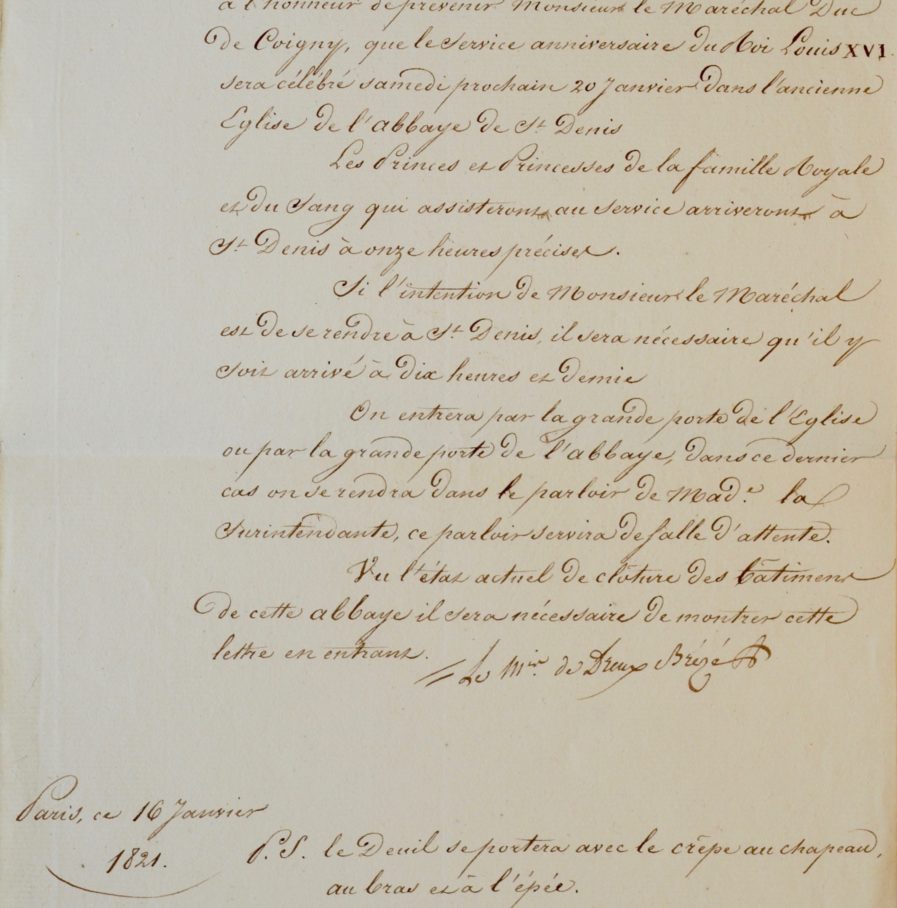 a l'honneur de prévenir Monsieur le Maréchal Duc
de Coigny, que le service anniversaire du Roi Louis XVI.
sera célébré samedi prochain 20 Janvier dans l'ancienne
Eglise de l'abbaye de St. Denis
Les Princes et Princesses de la famille Royale
et du Sang qui assisteront au service arriveront à
St. Denis à onze heures précises.
Si l'intention de Monsieur le Maréchal
est de se rendre à St. Denis, il sera nécessaire qu'il y
soit arrivé à dix heures et demie
On entrera par la grande porte de l'Eglise
ou par la grande porte de l'abbaye, dans ce dernier
cas on se rendra dans le parloir de Mad.e la
Surintendante, ce parloir servira de salle d'attente.
Vu l'état actuel de clôture des bâtimens
de cette abbaye il sera nécessaire de montrer cette
lettre en entrant.
Le M.is de Dreux Brézé
Paris, ce 16 Janvier
1821.
P.S. le Deuil se portera avec le crêpe au chapeau,
au bras et à l'épée.